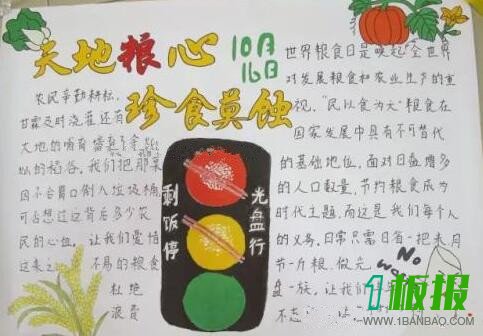 天地粮心
10月
16日
珍食莫蚀
农民辛勤耕耘，
甘霖及时浇灌还有
大地的哺育
的稻谷。我们把那些
因不合胃口倒入垃圾桶
可否想过这背后多少农
民的心血，让我们爱惜
这来之不易的粮食
杜绝
浪费
剩饭停
光盘行
世界粮食日是唤起全世界
对发展粮食和农业生产的重
视，“民以食为天”粮食在
国家发展中具有不可替代
的基础地位，面对日益增多
的人口数量，节约粮食成为
时代主题，而这是我们每个人
的义务，日常只需日省一把米月
节一斤粮，做光
盘一族，让我们
不忘
No
1板报
WWW.1BANBAO.COM